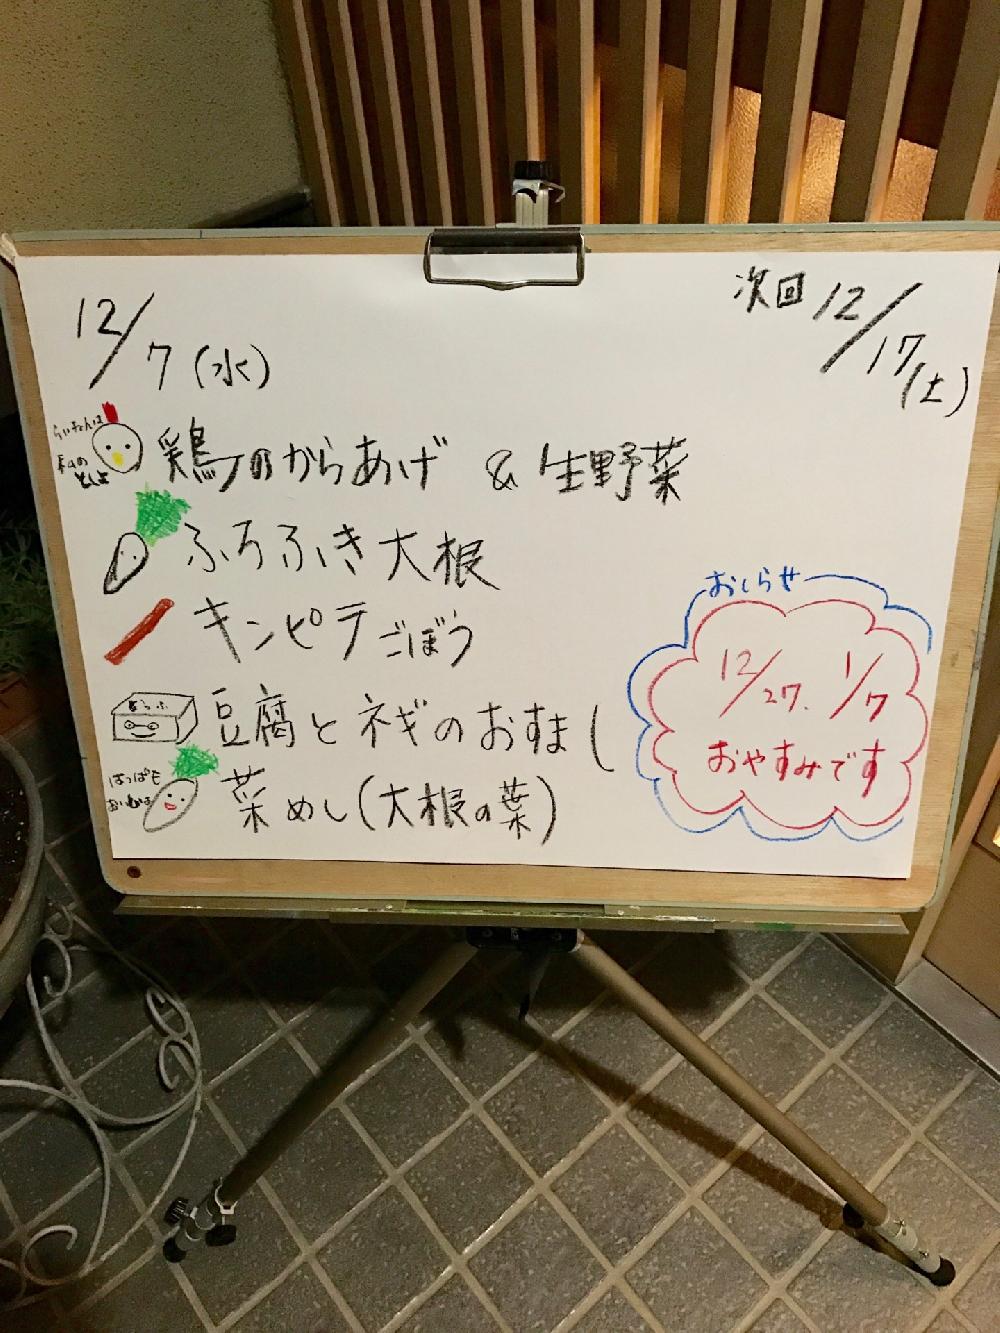 12/7(水)
次回 12/17(土)
鶏のからあげ & 生野菜
ふろふき大根
キンピラごぼう
とうふ
豆腐とネギのおすまし
はっぱも
菜めし(大根の葉)
おしらせ
12/27. 1/7
おやすみです